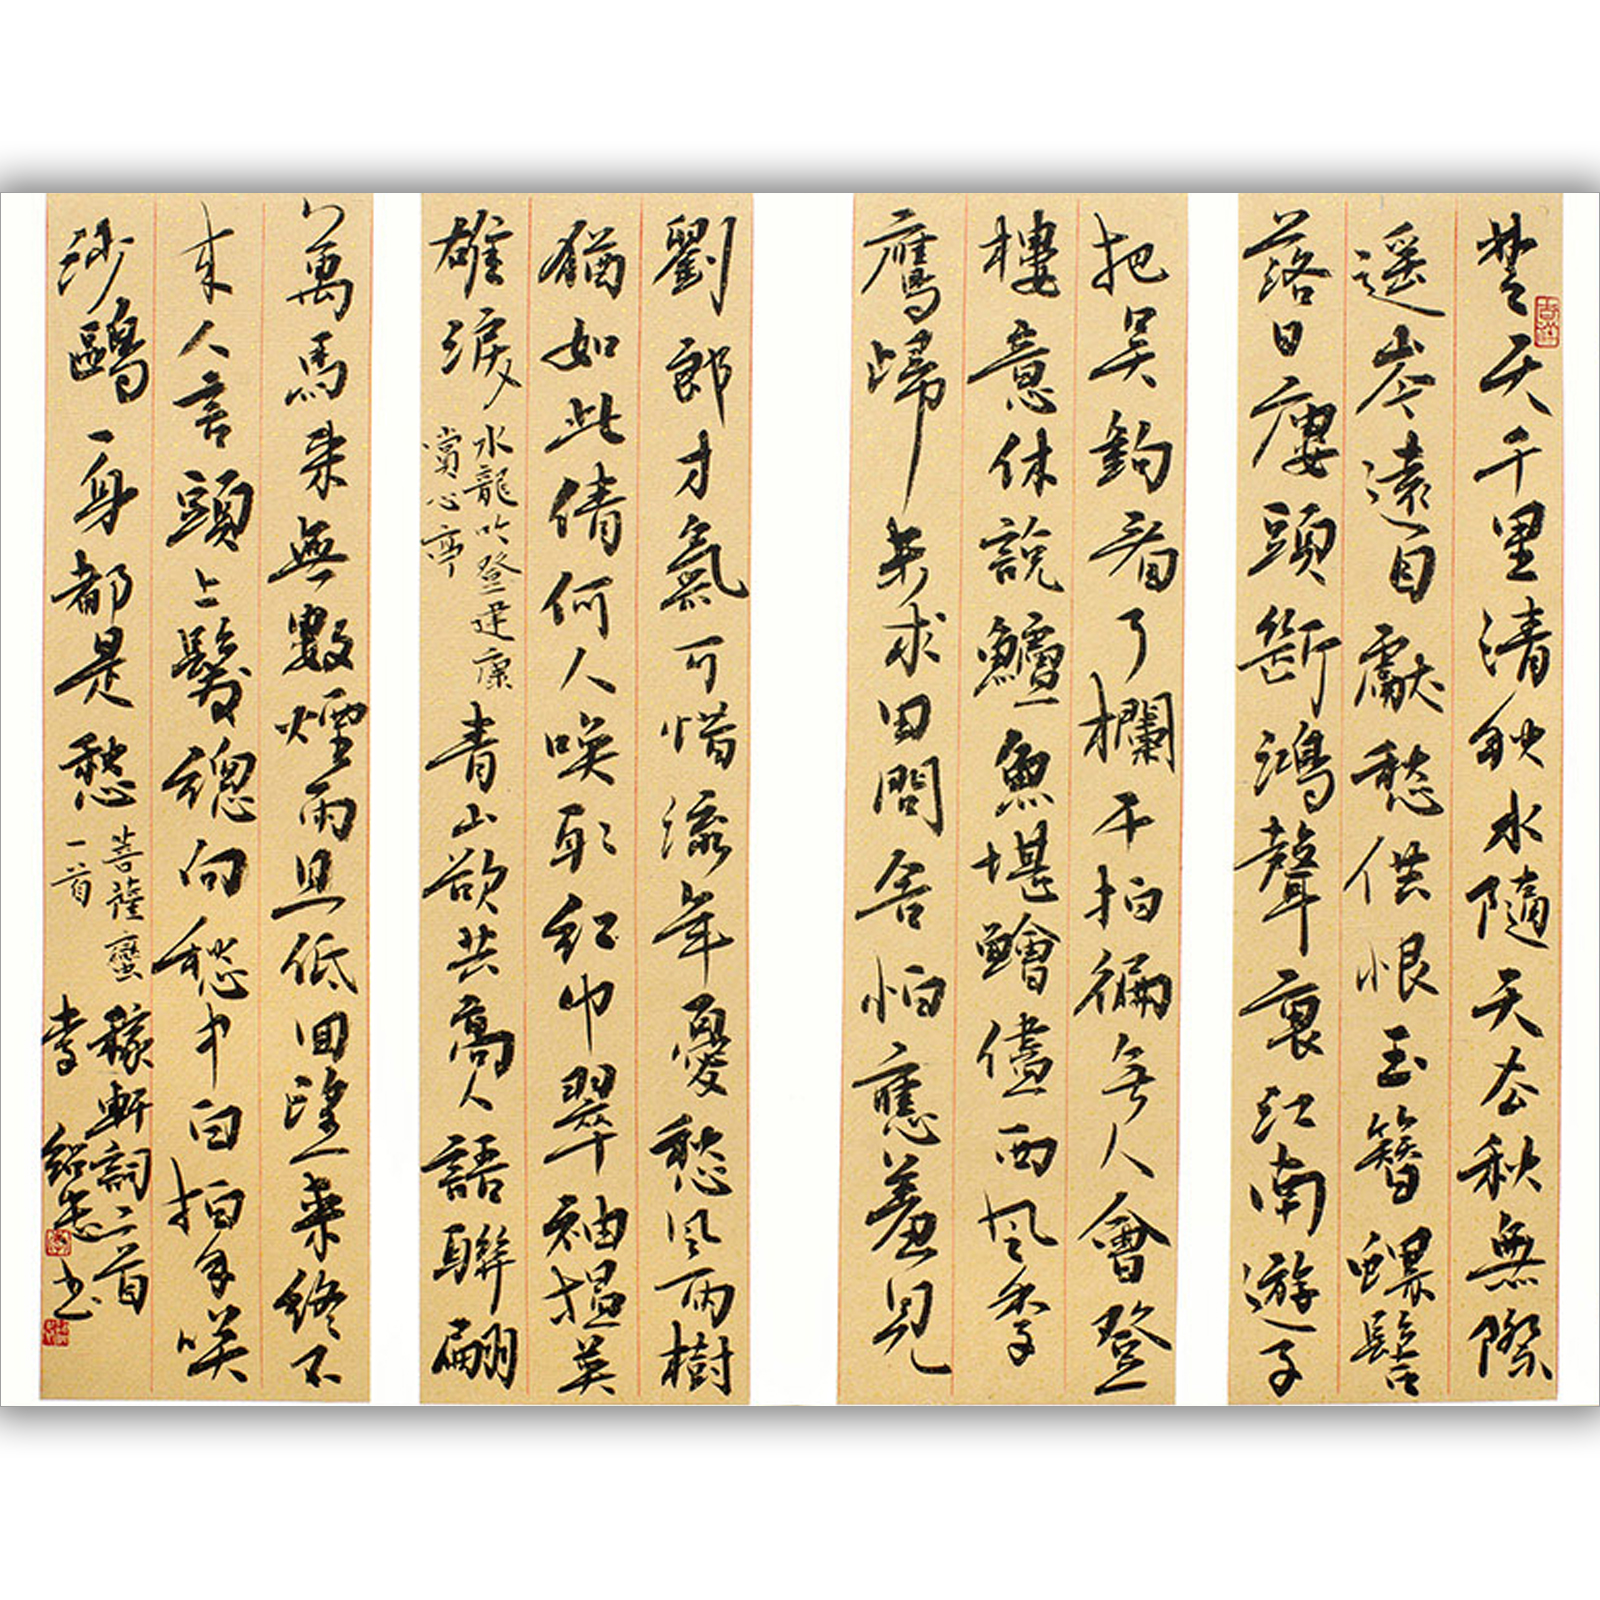 楚天千里清秋水隨天去秋無際
遥岑遠目獻愁供恨玉簪螺髻
落日廔頭斷鴻聲裏江南遊子
把吴鈎看了欄干拍徧无人會登
樓意休說鱸魚堪鱠儘西風季
鷹歸未求田問舍怕應羞見
劉郎才氣可惜流年憂愁風雨樹
猶如此倩何人唤取紅巾翠袖揾英
雄淚
水龍吟登建康
賞心亭
青山欲共高人語聯翩
萬馬来無數煙雨且低回望来終不
来人言頭上髮總向愁中白拍手咲
沙鷗一身都是愁
菩薩蠻
一首
稼軒詞二首
李紹志书